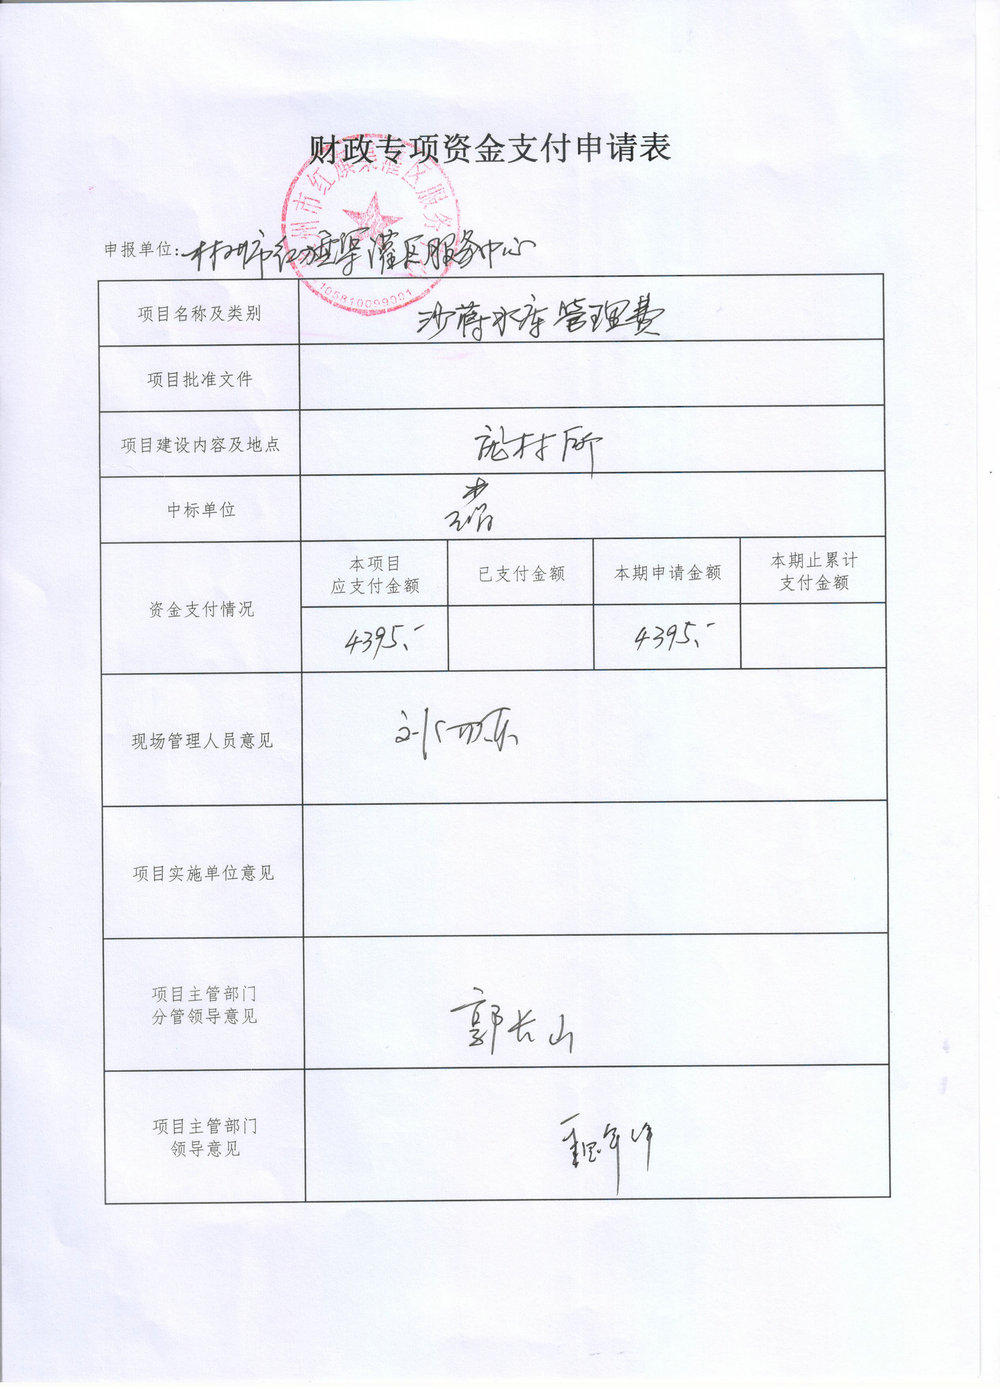 财政专项资金支付申请表
州市红旗渠灌区服务
105810099001
申报单位:林州市红旗渠灌区服务中心
项目名称及类别 沙蒋水库管理费
项目批准文件
项目建设内容及地点 村所
中标单位
资金支付情况
本项目 应支付金额
已支付金额
本期申请金额
本期止累计 支付金额
4395.-
4395.-
现场管理人员意见
项目实施单位意见
项目主管部门
分管领导意见
郭长山
项目主管部门
领导意见